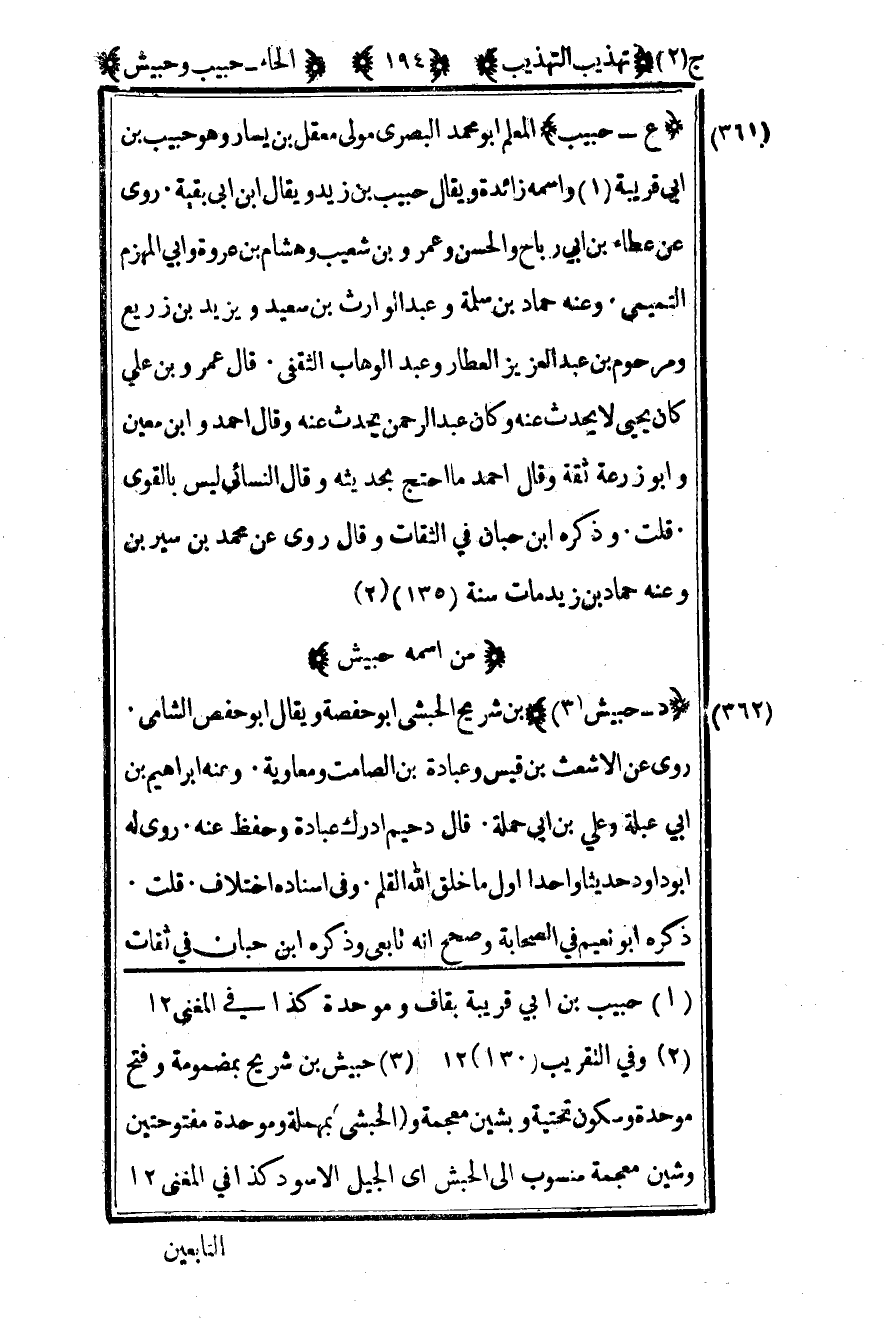 ج(٢) ﴿تهذيب التهذيب﴾ ﴿١٩٤﴾ ﴿الحاء ـ حبيب وحبيش﴾
(٣٦١) ﴿ع ـ حبيب﴾ المعلم ابو محمد البصرى مولى معقل بن يسار وهو حبيب بن
ابي قريبة (١) واسمه زائدة ويقال حبيب بن زيد ويقال ابن ابى بقية · روى
عن عطاء بن ابي رباح والحسن وعمرو بن شعيب وهشام بن عروة وابي المهزم
التميمي · وعنه حماد بن سلمة و عبد الوارث بن سعيد و يزيد بن زريع
ومرحوم بن عبد العزيز العطار وعبد الوهاب الثقفى · قال عمرو بن علي
كان يحيى لا يحدث عنه وكان عبد الرحمن يحدث عنه وقال احمد و ابن معين
و ابو زرعة ثقة وقال احمد ما احتج بحديثه و قال النسائي ليس بالقوى
· قلت · و ذكره ابن حبان في الثقات و قال روى عن محمد بن سيرين
و عنه حماد بن زيد مات سنة (١٣٥) (٢)
﴿من اسمه حبيش﴾
(٣٦٢) ﴿د ـ حبيش (٣)﴾ بن شريح الحبشى ابو حفصة ويقال ابو حفص الشامى ·
روى عن الاشعث بن قيس وعبادة بن الصامت ومعاوية · وعنه ابراهيم بن
ابي عبلة وعلي بن ابي حملة · قال دحيم ادرك عبادة وحفظ عنه · روى له
ابو داود حديثا واحدا اول ما خلق الله القلم · وفى اسناده اختلاف · قلت ·
ذكره ابو نعيم في الصحابة وصحح انه تابعى وذكره ابن حبان في ثقات
(١) حبيب بن ابي قريبة بقاف و موحدة كذا في المغنى ١٢
(٢) وفي التقريب (١٣٠) ١٢ (٣) حبيش بن شريح بمضمومة و فتح
موحدة وسكون تحتية و بشين معجمة و (الحبشى) بمهملة وموحدة مفتوحتين
وشين معجمة منسوب الى الحبش اى الجيل الاسود كذا في المغنى ١٢
التابعين